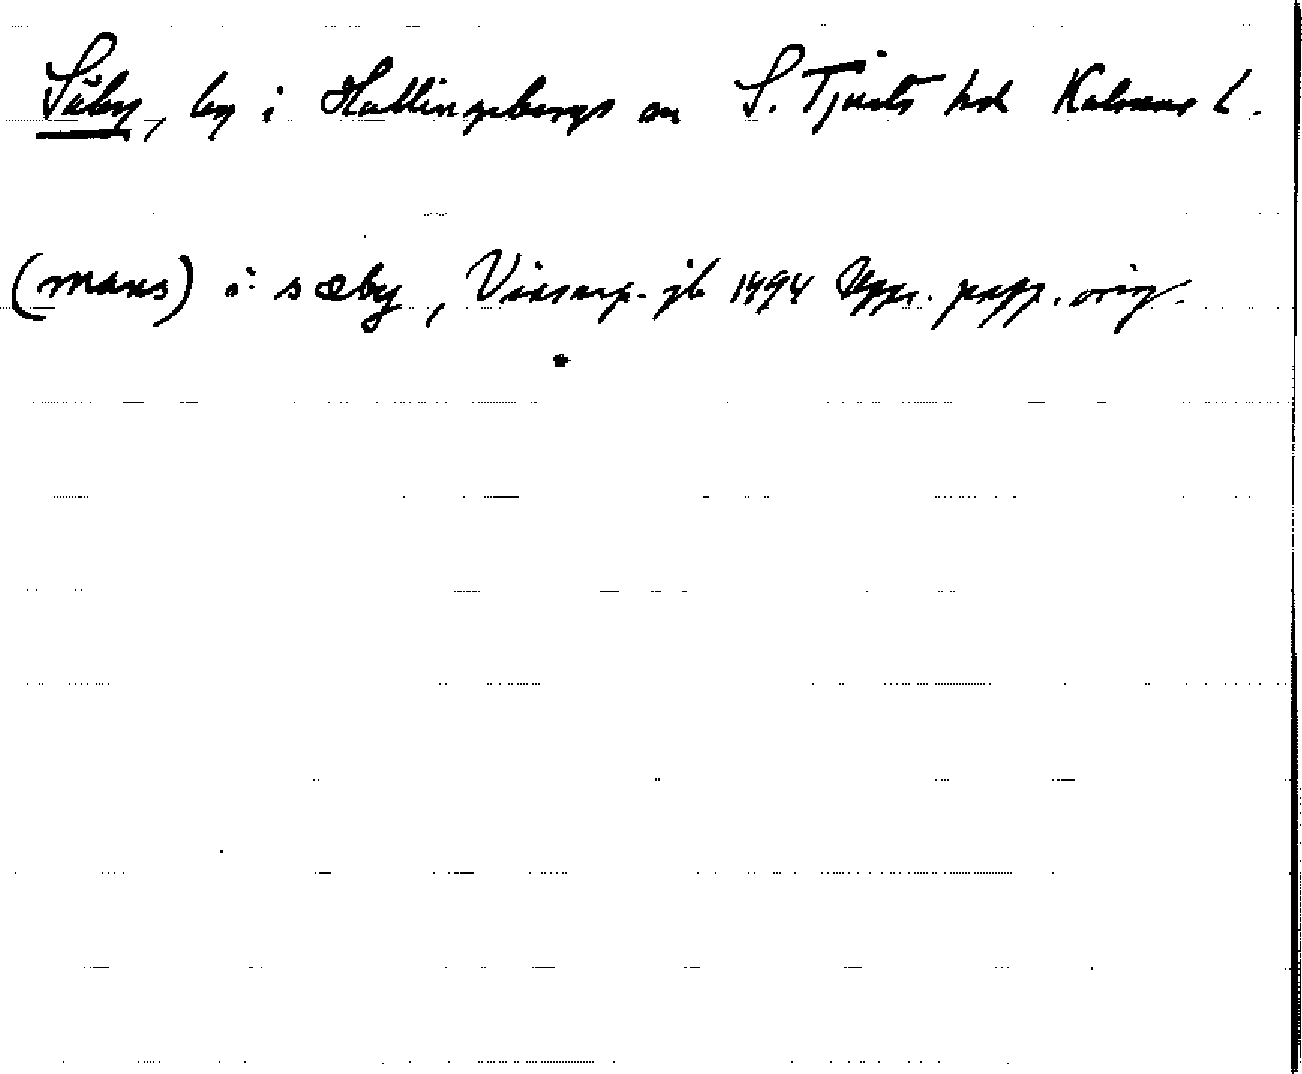 Säby, by i Hallingebergs sn S. Tjusts hd Kalmar l.
(maxs) i sæby, Vissarp. jb 1494 Uppr. papp. orig.